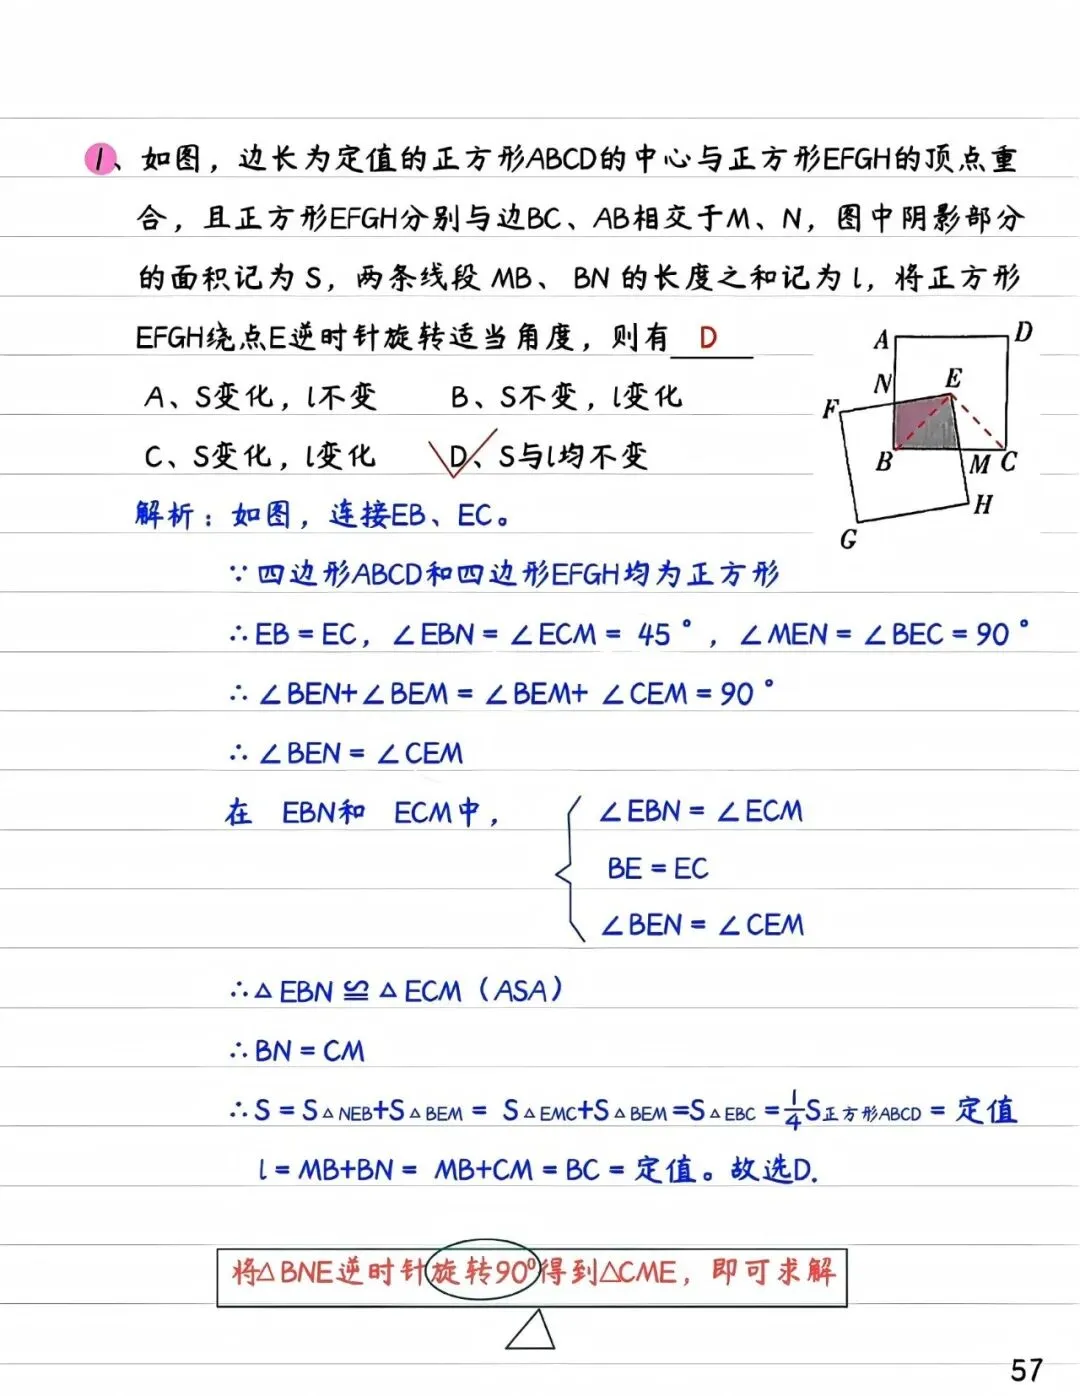 1、如图，边长为定值的正方形ABCD的中心与正方形EFGH的顶点重
合，且正方形EFGH分别与边BC、AB相交于M、N，图中阴影部分
的面积记为S，两条线段 MB、BN的长度之和记为l，将正方形
EFGH绕点E逆时针旋转适当角度，则有 D
A、S变化，l不变 B、S不变，l变化
C、S变化，l变化 D、S与l均不变
A D
N E
F
B M C
H
G
解析：如图，连接EB、EC。
∵四边形ABCD和四边形EFGH均为正方形
∴EB=EC，∠EBN=∠ECM=45°，∠MEN=∠BEC=90°
∴∠BEN+∠BEM=∠BEM+∠CEM=90°
∴∠BEN=∠CEM
在 EBN和 ECM中，
∠EBN=∠ECM
BE=EC
∠BEN=∠CEM
∴△EBN≌△ECM（ASA）
∴BN=CM
∴S=S△NEB+S△BEM=S△EMC+S△BEM=S△EBC=1/4S正方形ABCD=定值
l=MB+BN=MB+CM=BC=定值。故选D.
将△BNE逆时针旋转90°得到△CME，即可求解
57